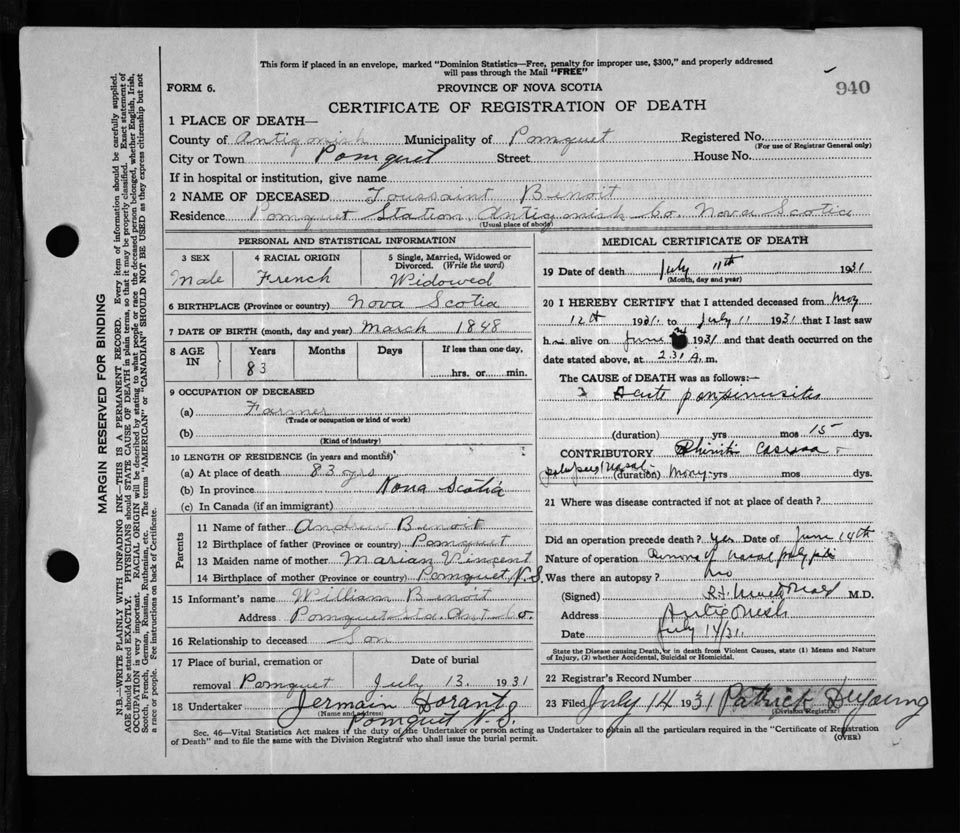 This form if placed in an envelope, marked "Dominion Statistics—Free, penalty for improper use, $300," and properly addressed
will pass through the Mail "FREE"
FORM 6.
PROVINCE OF NOVA SCOTIA
940
CERTIFICATE OF REGISTRATION OF DEATH
1 PLACE OF DEATH—
County of Antigonish Municipality of Pomquet Registered No.
(For use of Registrar General only)
City or Town Pomquet Street House No.
If in hospital or institution, give name
2 NAME OF DECEASED Toussaint Benoit
Residence Pomquet Station, Antigonish Co. Nova Scotia
(Usual place of abode)
PERSONAL AND STATISTICAL INFORMATION
3 SEX 4 RACIAL ORIGIN 5 Single, Married, Widowed or
Divorced. (Write the word)
Male French Widowed
6 BIRTHPLACE (Province or country) Nova Scotia
7 DATE OF BIRTH (month, day and year) March 1848
8 AGE IN Years Months Days If less than one day,
83 hrs. or min.
9 OCCUPATION OF DECEASED
(a) Farmer
(Trade or occupation or kind of work)
(b)
(Kind of industry)
10 LENGTH OF RESIDENCE (in years and months)
(a) At place of death 83 yrs
(b) In province Nova Scotia
(c) In Canada (if an immigrant)
Parents
11 Name of father Andrew Benoit
12 Birthplace of father (Province or country) Pomquet
13 Maiden name of mother Marian Vincent
14 Birthplace of mother (Province or country) Pomquet, N.S.
15 Informant's name William Benoit
Address Pomquet Sta. Ant Co.
16 Relationship to deceased Son
17 Place of burial, cremation or Date of burial
removal Pomquet July 13. 1931
18 Undertaker Jermain Dorant
(Name and address)
Pomquet N.S.
MEDICAL CERTIFICATE OF DEATH
19 Date of death July 11th 1931
(Month, day and year)
20 I HEREBY CERTIFY that I attended deceased from May
12th 1931 to July 11 1931 that I last saw
h alive on June 1931 and that death occurred on the
date stated above, at 2.31 A. m.
The CAUSE of DEATH was as follows:—
Acute pansinusitis
(duration) yrs mos 15 dys.
CONTRIBUTORY
(duration) many yrs mos dys.
21 Where was disease contracted if not at place of death?
Did an operation precede death? yes Date of June 14th
Nature of operation Removal of nasal polypi
Was there an autopsy? no
(Signed) M.D.
Address Antigonish
Date July 14/31.
State the Disease causing Death, or in death from Violent Causes, state (1) Means and Nature
of Injury, (2) whether Accidental, Suicidal or Homicidal.
22 Registrar's Record Number
23 Filed July 14 1931 Patrick DeYoung
(Division Registrar)
Sec. 46—Vital Statistics Act makes it the duty of the Undertaker or person acting as Undertaker to obtain all the particulars required in the "Certificate of Registration
of Death" and to file the same with the Division Registrar who shall issue the burial permit.
(OVER)
MARGIN RESERVED FOR BINDING
N.B.—WRITE PLAINLY WITH UNFADING INK—THIS IS A PERMANENT RECORD. Every item of information should be carefully supplied.
AGE should be stated EXACTLY. PHYSICIANS should STATE CAUSE OF DEATH in plain terms, so that it may be properly classified. Exact statement of
OCCUPATION is very important. RACIAL ORIGIN will be described by stating to what people or race the deceased person belonged, whether English, Irish,
Scotch, French, German, Russian, Ruthenian, etc. The terms "AMERICAN" or "CANADIAN" SHOULD NOT BE USED as they express citizenship but not
a race or people. See instructions on back of Certificate.